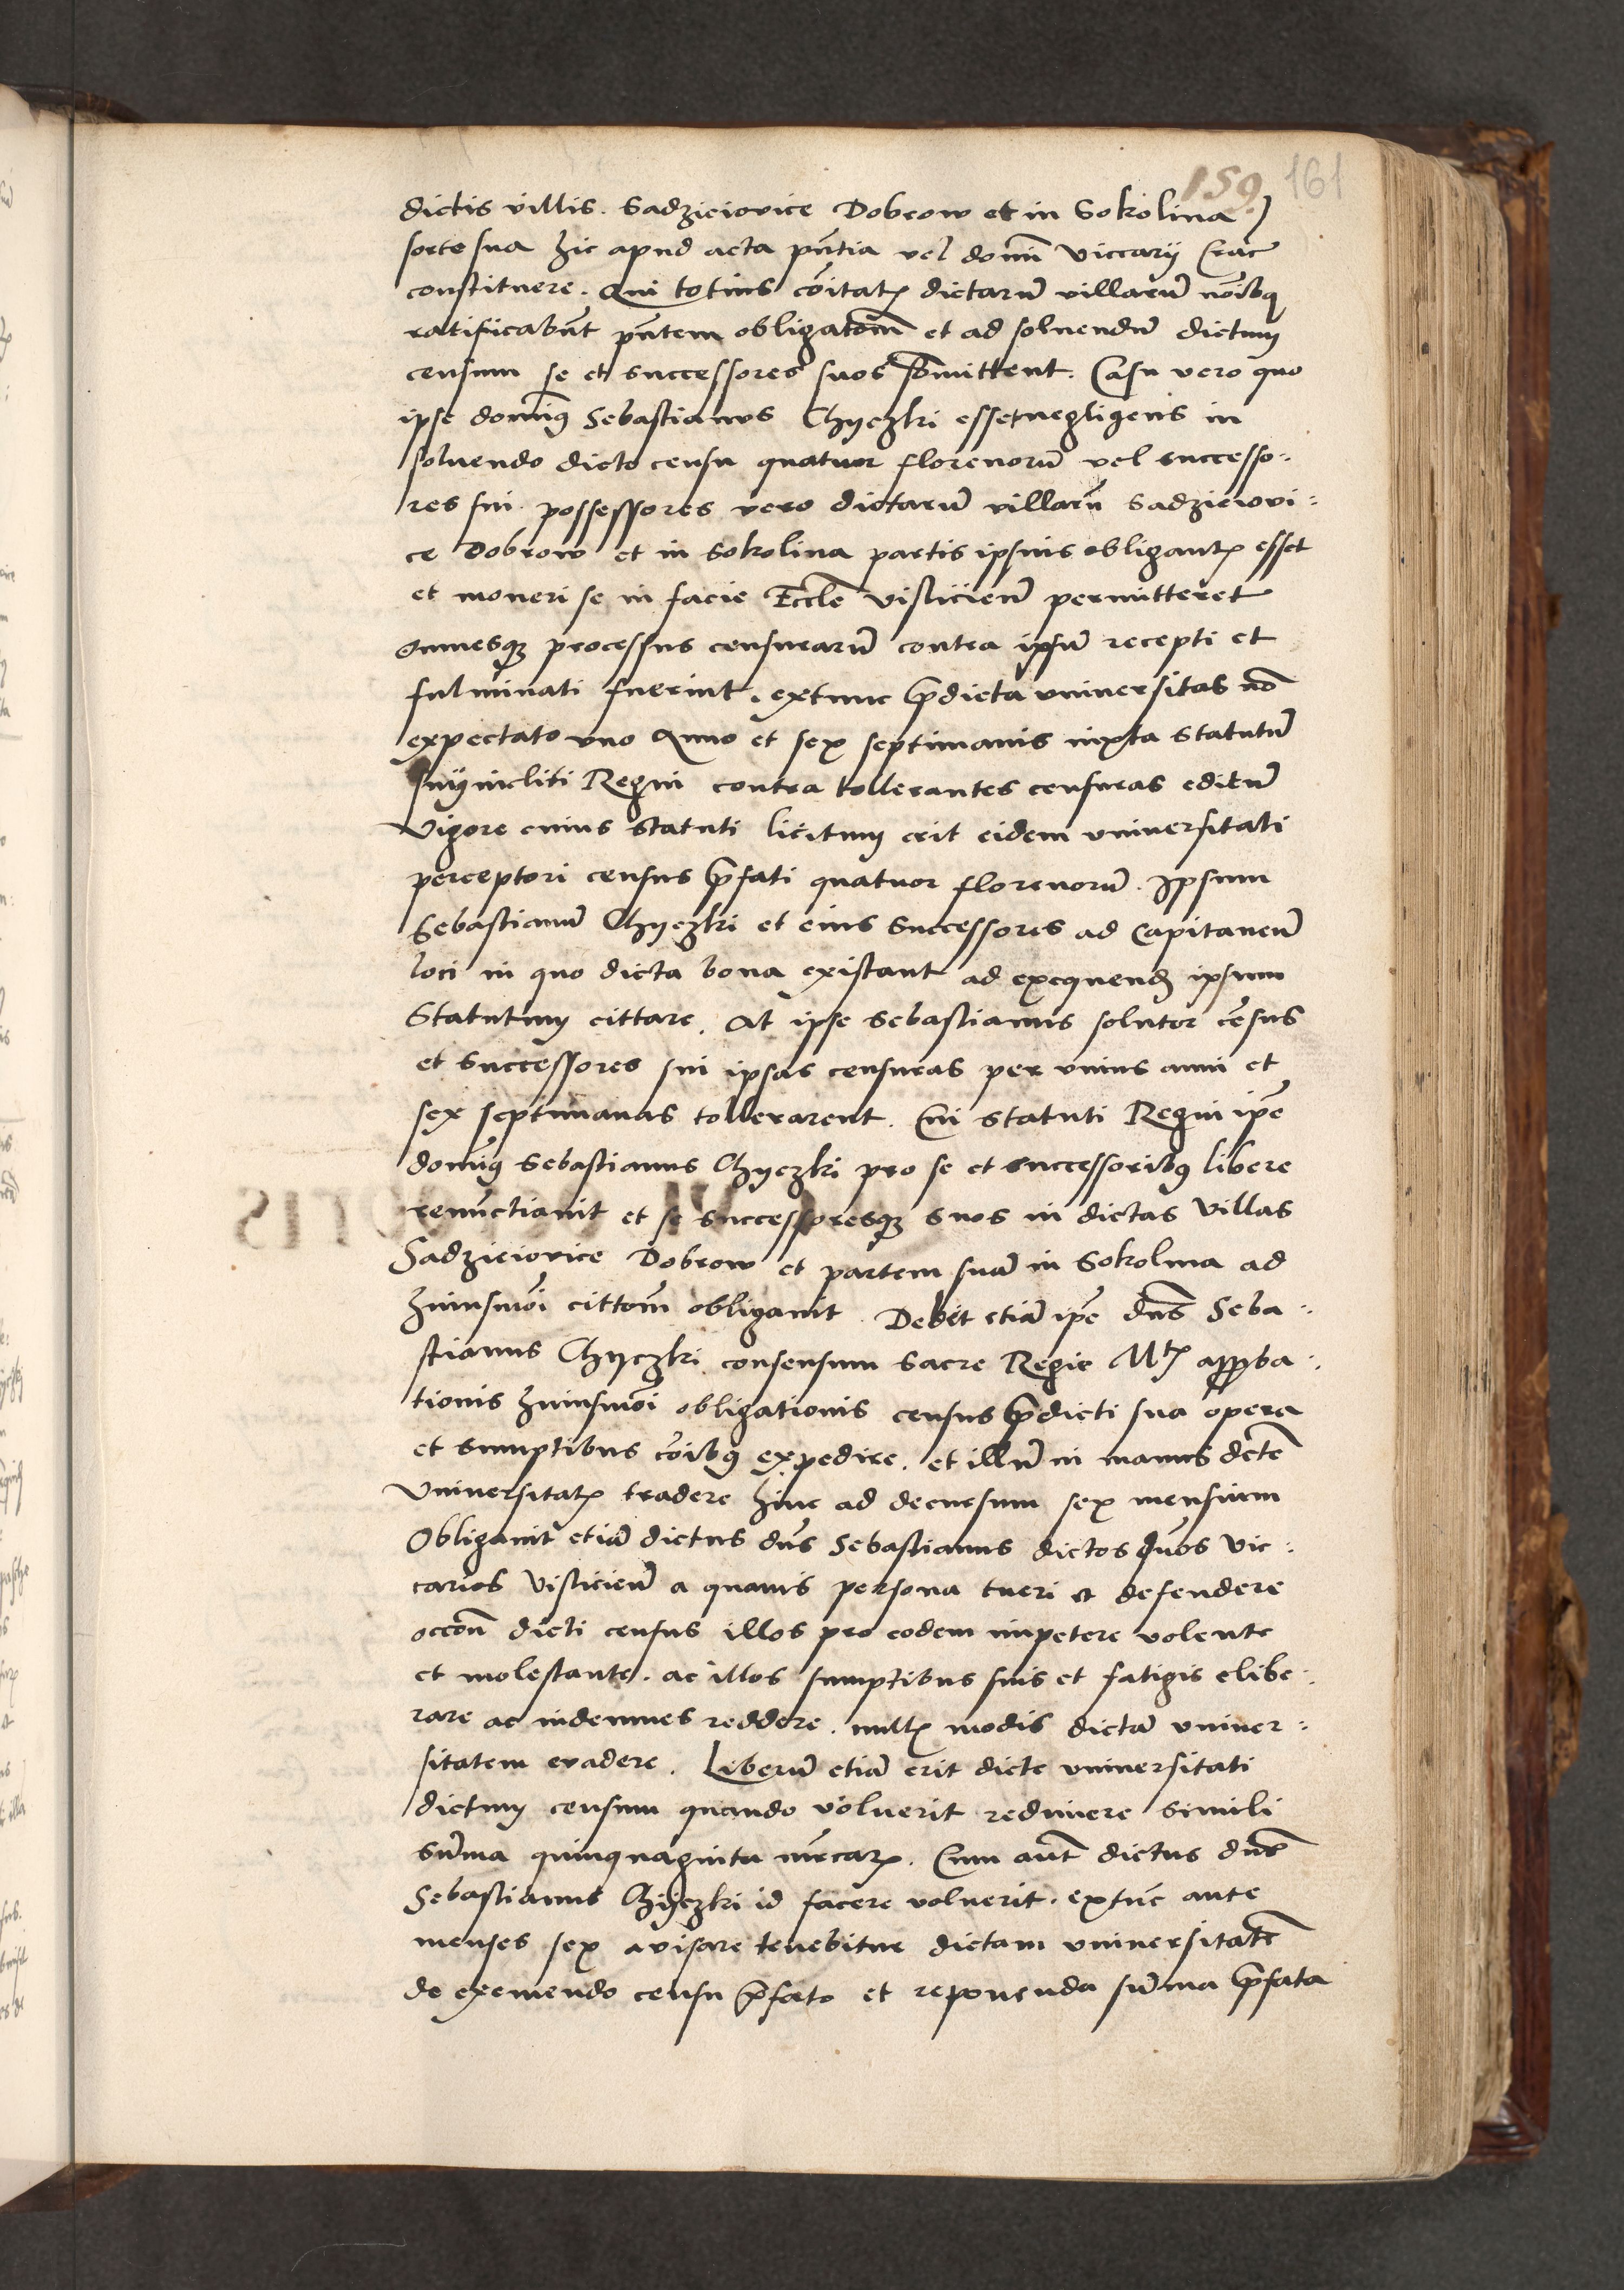 159. 161
dictis villis. Sadzieiovice Dobrow et in Sokolina
sorte sua hic apud acta pñtia vel domĩ viccarij Crac̃
constituere. Qui totius cõitatꝫ dictarũ villarũ nõibꝫ
ratificabũt pñtem obligatõem et ad soluendũ dictum
censum se et successores suos sõmittent. Casu vero quo
ipse domĩꝰ Sebastianus Chyczki esset negligens in
soluendo dicto censu quatuor florenorũ vel successo:
res sui possessores vero dictarũ villarũ Sadzieiovi:
ce Dobrow et in Sokolina partis ipsius obligantꝫ esset
et moneri se in facie Eccl̃e visliciens̃ permitteret
omnesqꝫ processus censurarũ contra ipsũ recepti et
fulminati fuerint. extunc p̃dicta universitas nõ
expectato vno Anno et sex septimanis iuxta Statutũ
huius incliti Regni contra tollerantes censuras editũ
Vigore cuius statuti licitum erit eidem vniversitati
perceptori census p̃fati quatuor florenorũ. Ipsum
Sebastianũ Chyczki et eius successores ad Capitaneũ
loci in quo dicta bona existant ad exequendũ ipsum
Statutum cittare. At ipse Sebastianus solutor cẽsus
et successores sui ipsas censuras per vnius anni et
sex septimanas tollerarent. Cui statuti Regni ip̃e
domĩꝰ Sebastianus Chyczki pro se et successoribꝰ libere
renũctiauit et se successoresqꝫ suos in dictas villas
Sadzieiovice Dobrow et partem suã in Sokolina ad
huiusmõi cittõem obligauit. Debet etiã ip̃e dñs Seba:
stianus Chyczki consensum Sacre Regie Mtꝫ approba:
tionis huiusmõi obligationis census p̃dicti sua opera
et sumptibus cõibꝰ expedire. et illũ in manus dicte
Vniversitatꝫ tradere hinc ad decursum sex mensium
Obligauit etiã dictus dñs Sebastianus dictos duos vic:
carios Visliciens̃ a quauis persona tueri et defendere
occõne dicti census illos pro eodem impetere volente
et molestante. ac illos sumptibus suis et fatigis elibe:
rare ac indemnes reddere. multꝫ modis dictã vniver:
sitatem evadere. Liberũ etiã erit dicte vniversitati
dictum censum quando voluerit redimere simili
sũma quinquaginta mrcarꝫ. Cum aũt dictus dñs
Sebastianus Chyczki id facere voluerit. extũc ante
menses sex avisare tenebitur dictam universitatẽ
de eximendo censu p̃fato et reponenda sũma p̃fata